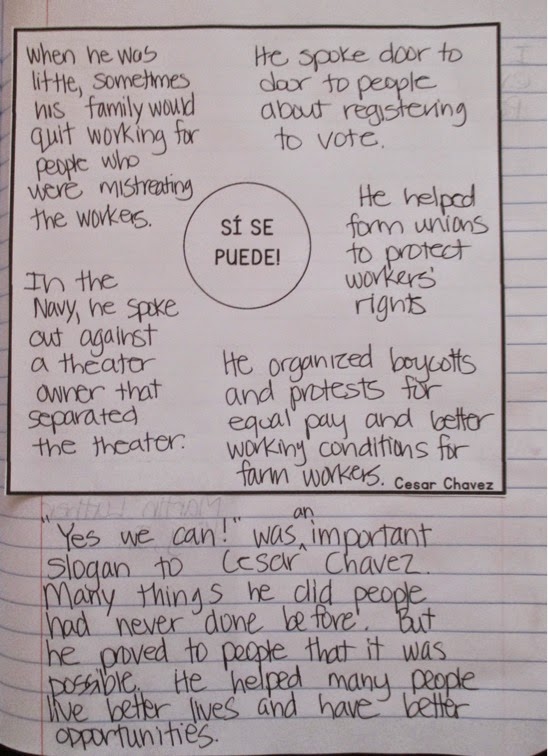 When he was
little, sometimes
his family would
quit working for
people who
were mistreating
the workers.
He spoke door to
door to people
about registering
to vote.
SÍ SE
PUEDE!
He helped
form unions
to protect
workers'
rights
In the
Navy, he spoke
out against
a theater
owner that
separated
the theater.
He organized boycotts
and protests for
equal pay and better
working conditions for
farm workers.
Cesar Chavez
"Yes we can!" was an important
slogan to Cesar Chavez.
Many things he did people
had never done before. But
he proved to people that it was
possible. He helped many people
live better lives and have better
opportunities.